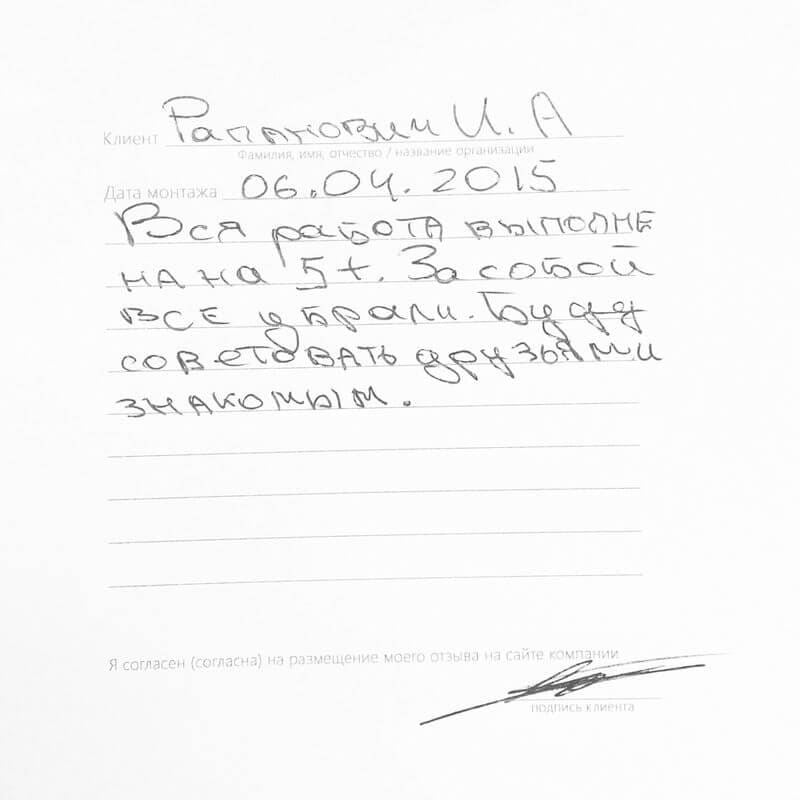 Клиент Рапанович И. А
Фамилия, имя, отчество / название организации
Дата монтажа 06.04.2015
Вся работа выполне
на на 5+. За собой
все убрали. Буду
советовать друзьям и
знакомым.
Я согласен (согласна) на размещение моего отзыва на сайте компании
подпись клиента